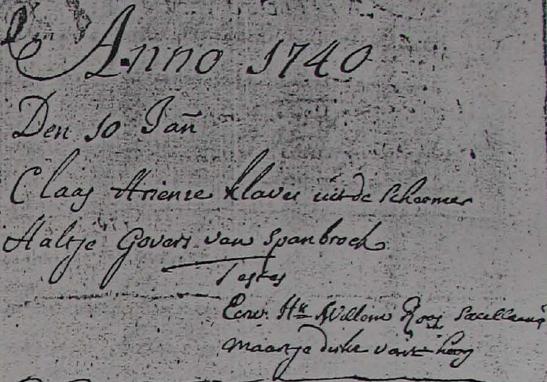 Anno 1740
Den 10 Jañ
Claas Ariense klaver uit de Scheermer
Aaltje Govers van Spanbroek
Testes
Eerw. Hr Willem Roos Sacellanus
Maartje Dirks van't hoog